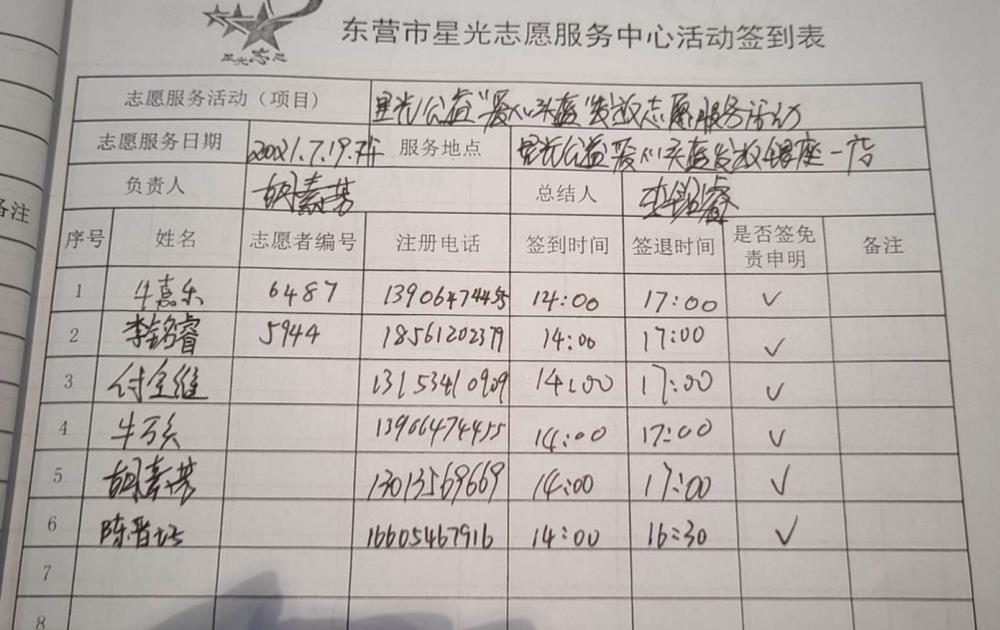 星光志愿
东营市星光志愿服务中心活动签到表
志愿服务活动（项目） 星光公益"爱心头盔"发放志愿服务活动
志愿服务日期 2021.7.19.下午 服务地点 星光公益爱心头盔发放银座一店
负责人 胡素芳 总结人 李铭睿
备注
序号 姓名 志愿者编号 注册电话 签到时间 签退时间 是否签免责申明 备注
1 牛嘉乐 6487 13906474455 14:00 17:00 ✓
2 李铭睿 5944 18561202379 14:00 17:00 ✓
3 付全维 13153410909 14:00 17:00 ✓
4 牛 13966474455 14:00 17:00 ✓
5 胡素芳 13013569669 14:00 17:00 ✓
6 陈晋 16605467916 14:00 16:30 ✓
7
8